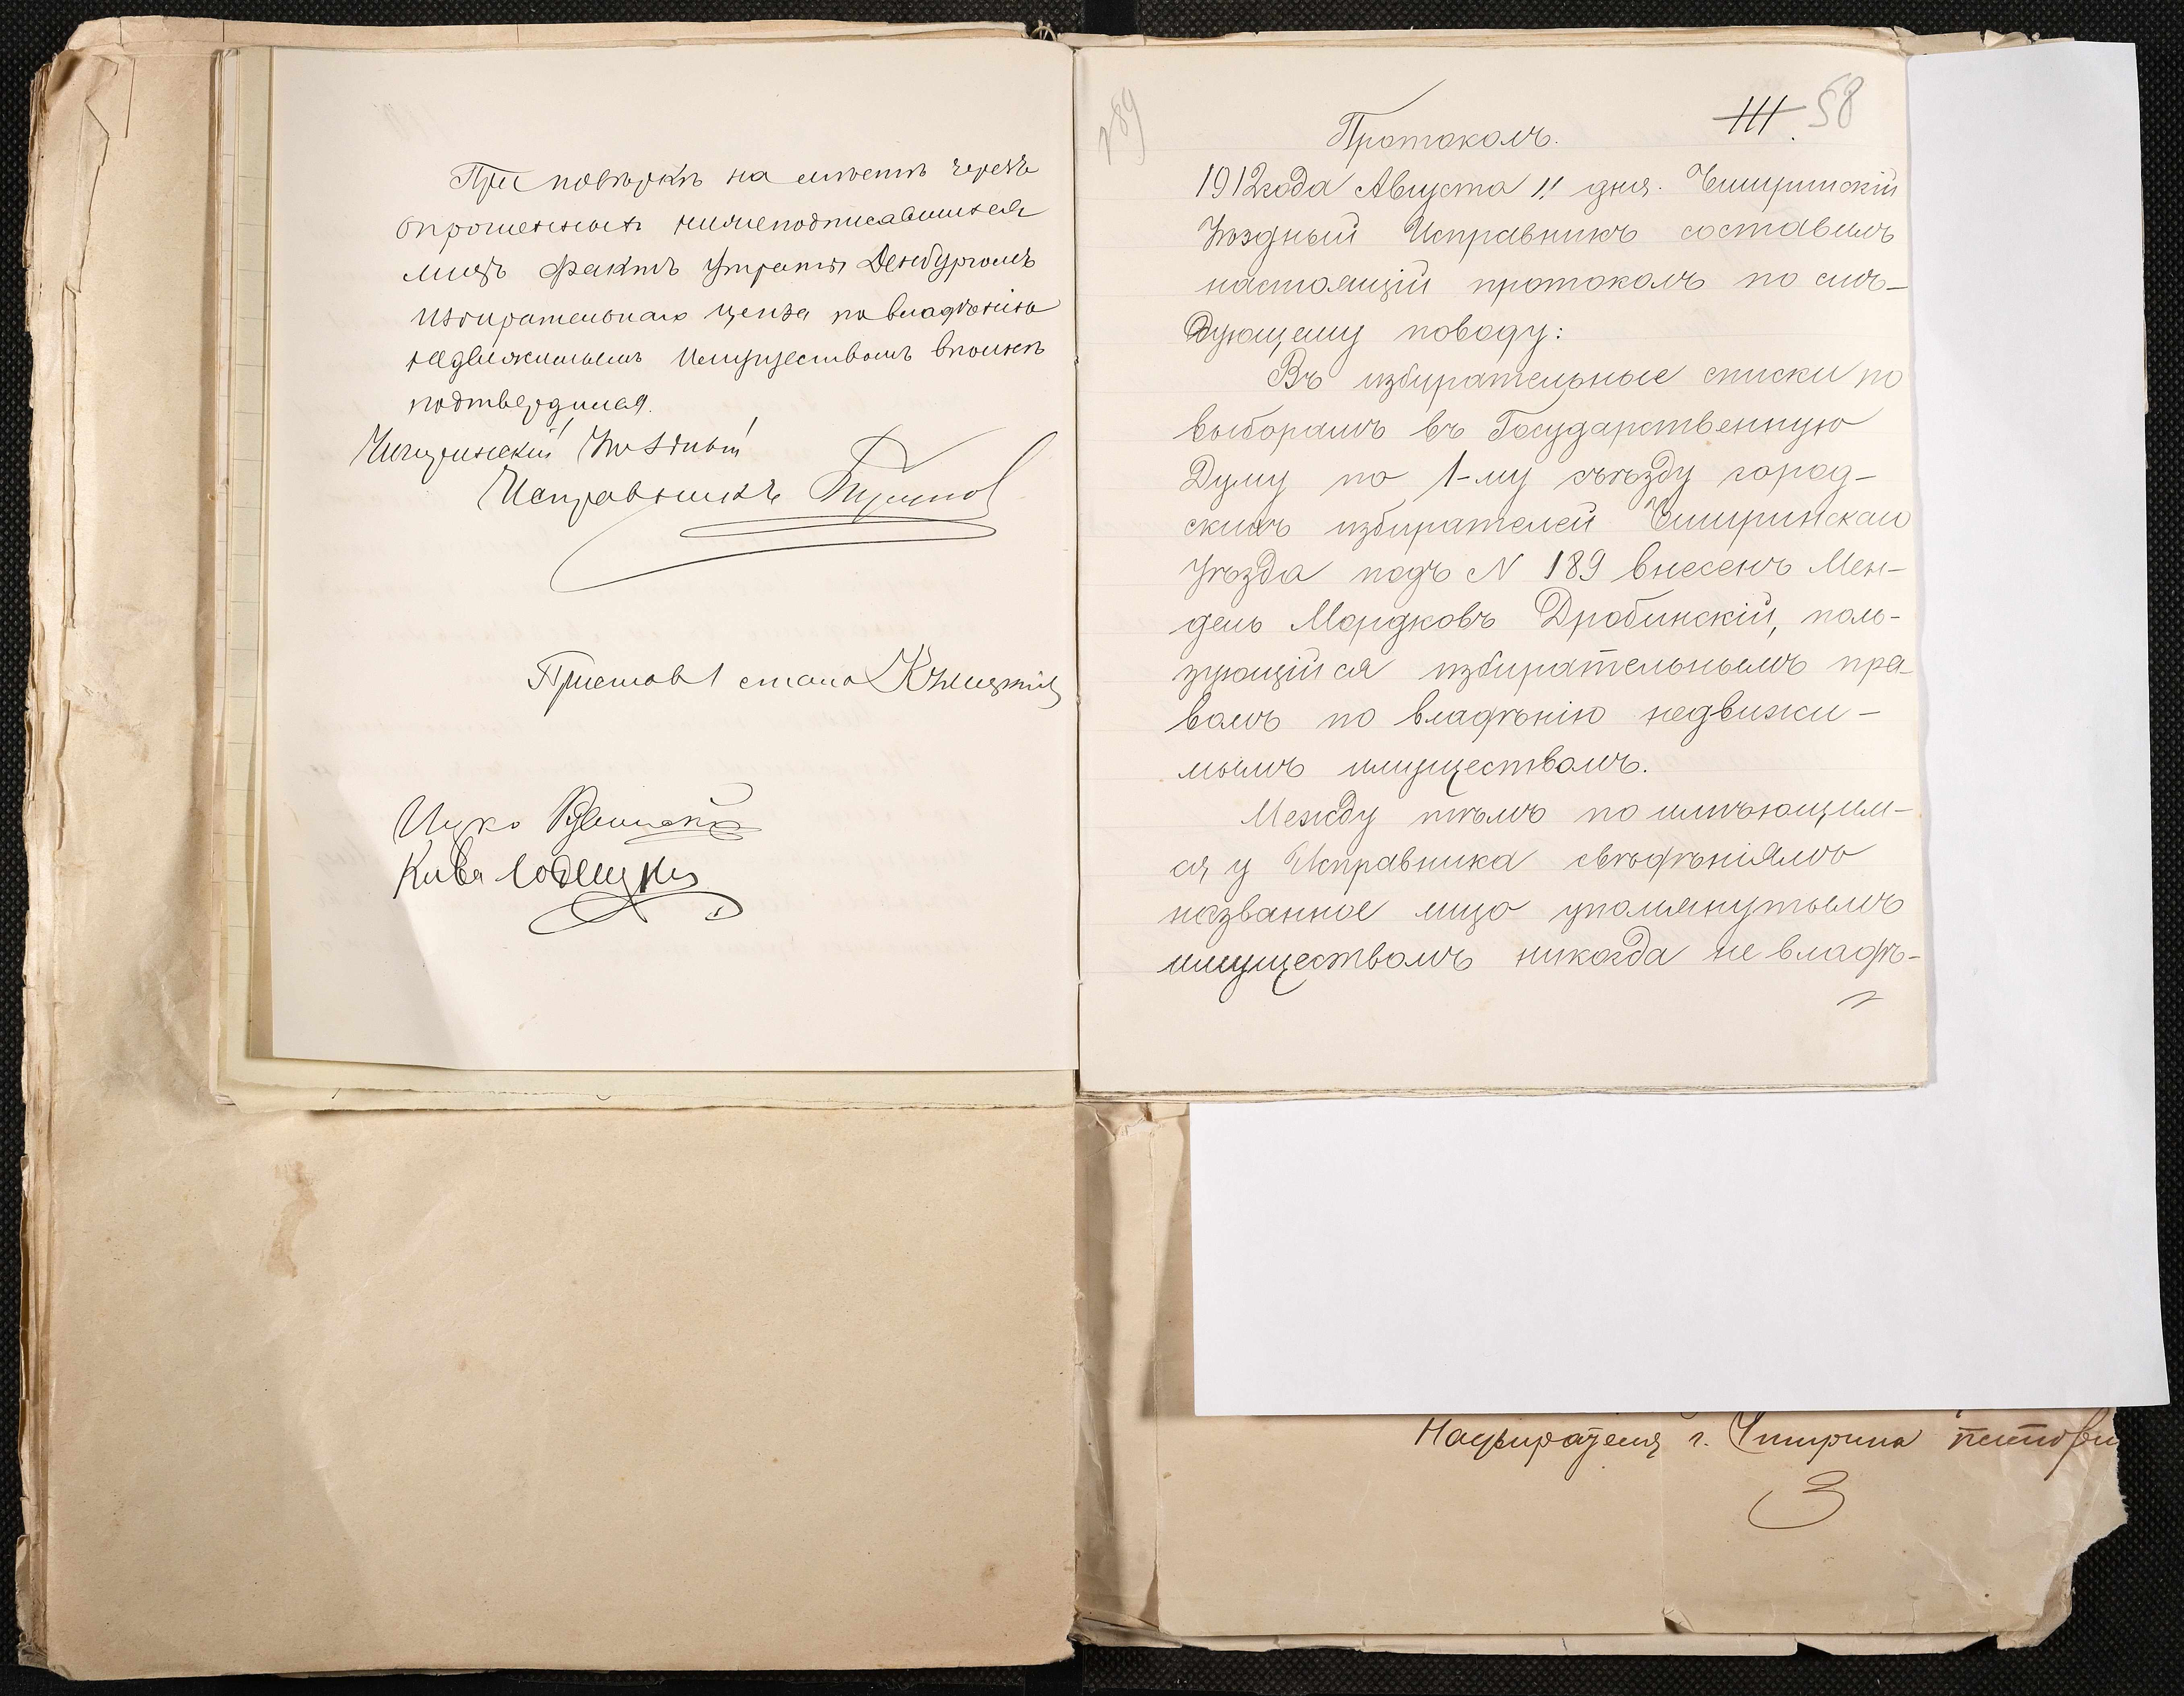 При повѣркѣ на мѣстѣ черезъ
опрошенныхъ нижеподписавшихся
лицъ фактъ утраты Денбургомъ
избирательнаго ценза по владѣнію
недвижимымъ имуществомъ вполнѣ
подтвердился.
Чигиринскій Уѣздный
Исправникъ
Приставъ 1 стана
Ицко
Кива
189
Протоколъ.
111. 58
1912 года Августа 11 дня. Чигиринскій
Уѣздный Исправникъ составилъ
настоящій протоколъ по слѣ-
дующему поводу:
Въ избирательные списки по
выборамъ въ Государственную
Думу по 1-му съѣзду город-
скихъ избирателей Чигиринскаго
уѣзда подъ N 189 внесенъ Мен-
дель Мордковъ Дробинскій, поль-
зующійся избирательнымъ пра-
вомъ по владѣнію недвижи-
мымъ имуществомъ.
Между тѣмъ по имѣющим-
ся у Исправника свѣдѣніямъ
названное лицо упомянутымъ
имуществомъ никогда не владѣ-
Надзирателя г. Чигирина